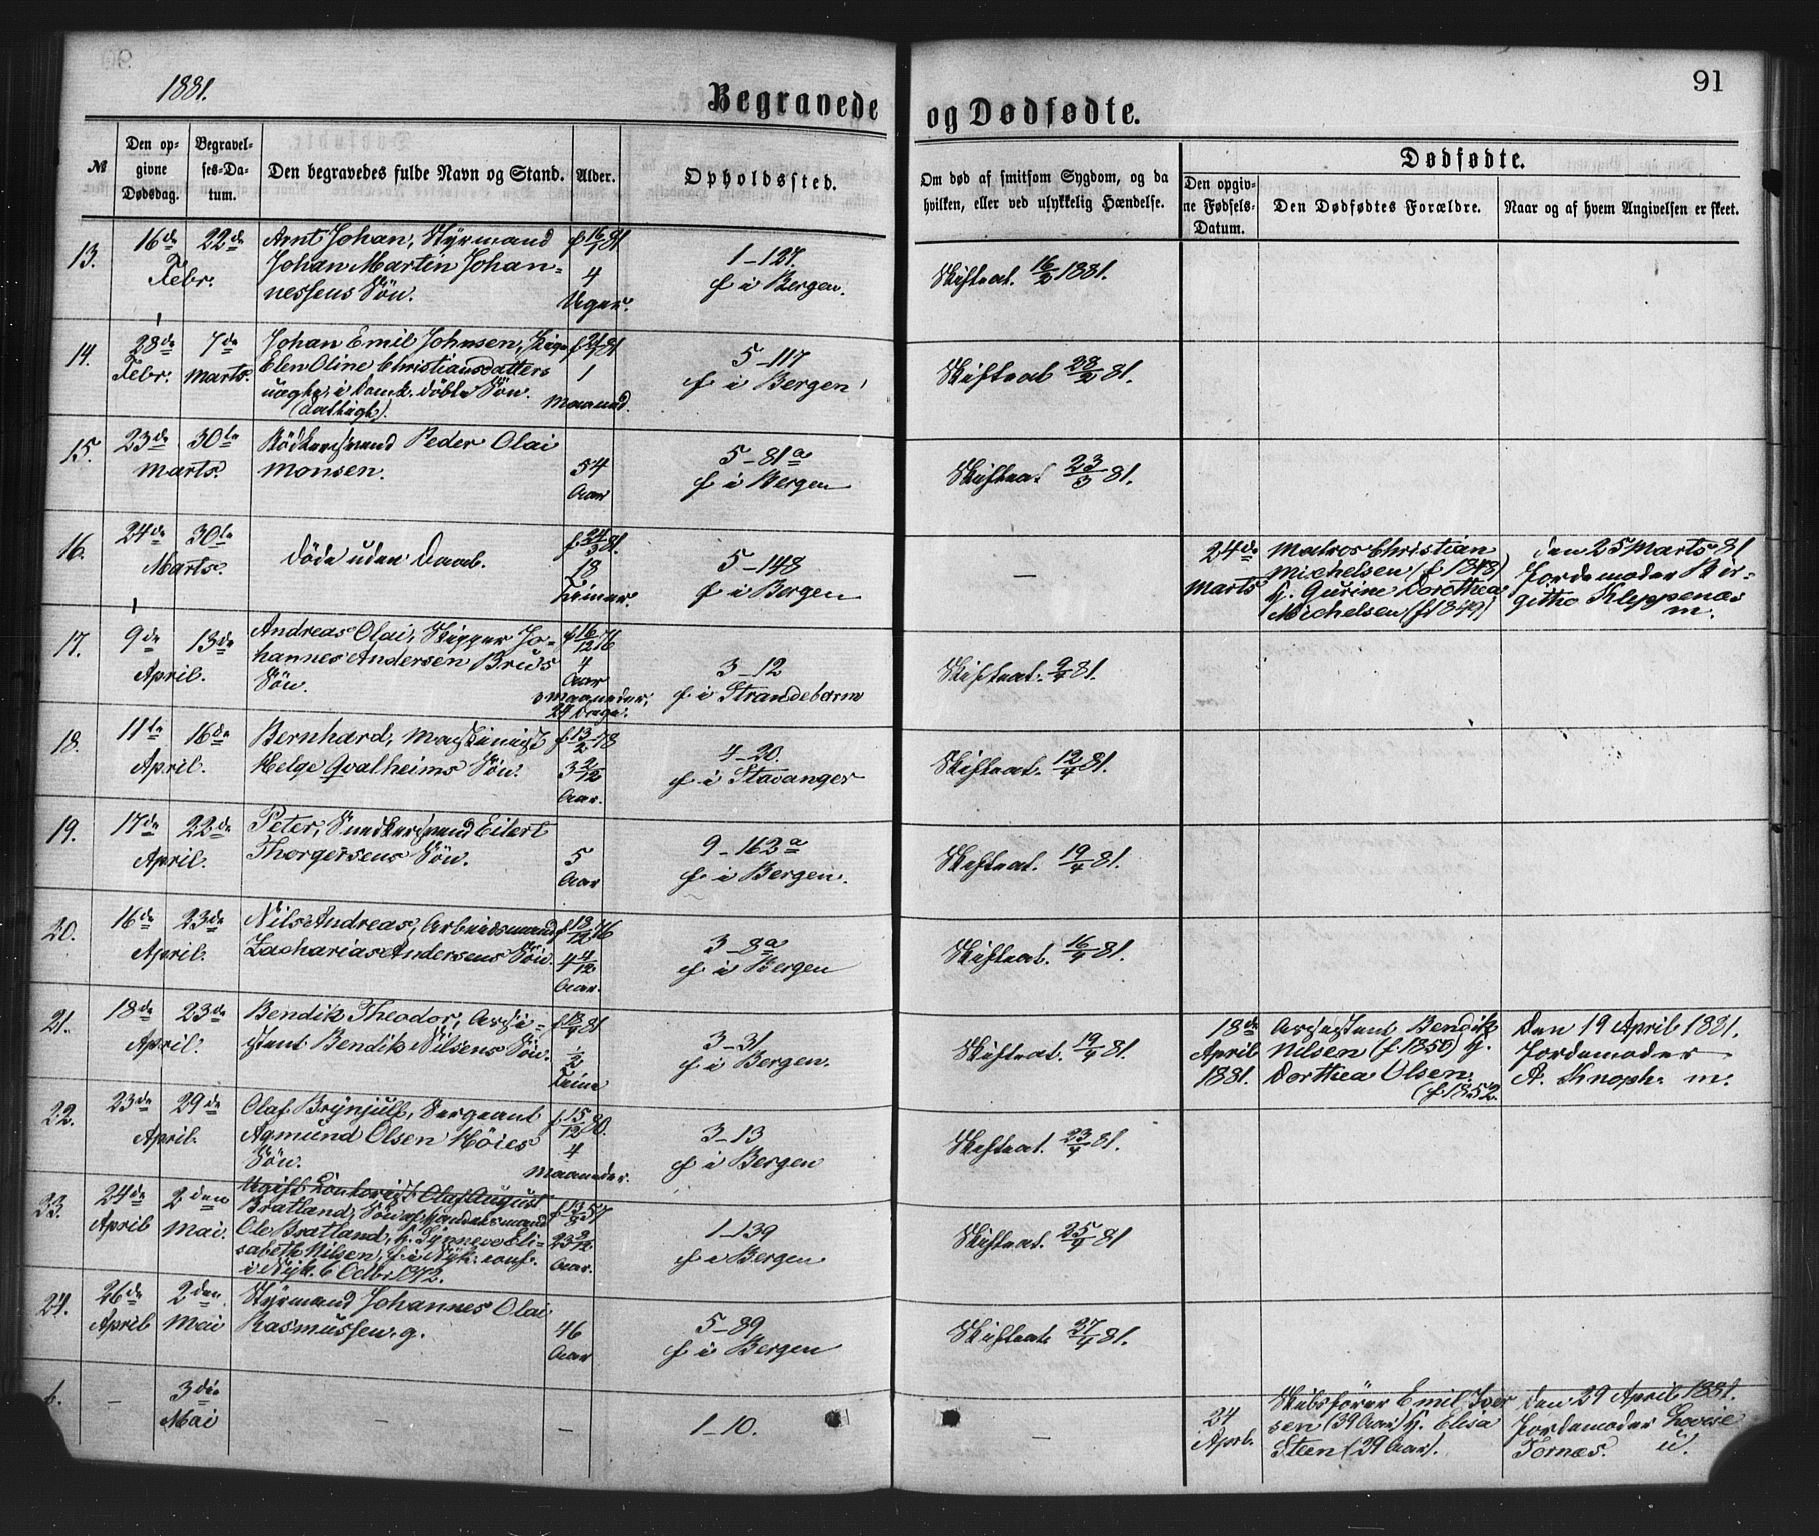 1881.
Begravede
og Dødfødte.
91
№
Den op-
givne
Dødsdag.
Begravel-
ses-Da-
tum.
Den begravedes fulde Navn og Stand.
Alder.
Opholdssted.
Om død af smitsom Sygdom, og da
hvilken, eller ved ulykkelig Hændelse.
Dødfødte.
Den opgiv-
ne Fødsels-
Datum.
Den Dødfødtes Forældre.
Naar og af hvem Angivelsen er skeet.
13.
16de 22de
Febr.
Arnt Johan, Styrmand
Johan Martin Johan-
nessens Søn.
f 16/1 81
4
Uger.
1-127.
f i Bergen.
Skifteat. 16/2 1881.
14.
28de Febr.
7de Marts.
Johan Emil Johnsen, Pige
Elen Oline Christiansdatters
uægte, i
døbte Søn.
f 21/1 81
1
Maaned.
5-117
f i Bergen
Skifteat 28/2 81.
15.
23de 30te
Marts.
Bødkersvend Peder Olai
Monsen.
54
Aar
5-81a
f i Bergen
Skifteat 23/3 81.
16.
24de 30te
Marts.
Døde uden Daab.
f. 24/3 81.
18
Timer.
5-148
f i Bergen
—
24de
Marts
Matros Christian
Michelsen (f 1848)
H. Gurine Dorothea
Michelsen (f 1849)
den 25 Marts 81
Jordemoder Bir-
githe Kleppenæs
m.
17.
9de 13de
April.
Andreas Olai, Skipper Jo-
hannes Andersen Bruds
Søn.
f 16/12 76
4
Aar
3 Maaneder,
24 Dage.
3-12
f. i Strandebarm
Skifteat. 9/4 81.
18.
11te 16de
April.
Bernhard, Maskinist
Helge Qvalheims Søn.
f 13/2 78
3 2/12
Aar.
4-20.
f i Stavanger
Skifteat. 12/4 81.
19.
17de 22de
April.
Peter, Snedkersvend Eilert
Thorgersens Søn.
5
Aar
9-162a
f. i Bergen.
Skifteat. 19/4 81.
20.
16de 23de
April.
Nils Andreas, Arbeidsmand
Zacharias Andersens Søn.
f 18/12 76
4 4/12
Aar.
3-8a
f i Bergen
Skifteat. 16/4 81.
21.
18de 23de
April.
Bendik Theodor, Assi-
stent Bendik Nilsens Søn.
f 18/4 81
1/2
Time
3-31
f i Bergen.
Skifteat. 19/4 81.
18de
April
1881.
Assistent Bendik
Nilsen (f. 1850) H.
Dorthea Olsen
(f. 1852.
Den 19 April 1881.
Jordemoder
A. Knoph. m.
22.
23de 29de
April.
Olaf Brynjulf, Sergeant
Agmund Olsen Høies
Søn.
f 15/12 80.
4
Maaneder.
3-13
f i Bergen
Skifteat. 23/4 81.
23.
24de April
2den Mai.
Ugift Contorist Olaf August
Bratland, Søn af Handelsmand
Ole Bratland, H. Synneve Eli-
sabeth Nilsen, f. i Nyk. conf.
i Nyk. 6 Octbr 1872.
f 57
23
Aar.
1-139
f i Bergen
Skifteat. 25/4 81
24.
26de April
2den Mai
Styrmand Johannes Olai
Rasmussen. g.
46
Aar
5-89
f. i Bergen
Skifteat. 27/4 81.
b.
—
3die
Mai
—
1-10.
—
24
Aprb.
Skibsfører Emil Iver
sen (39 Aar) H. Elisa
Steen (29 Aar).
den 29 April 1881.
Jordemoder Lovise
Tornæs. u.